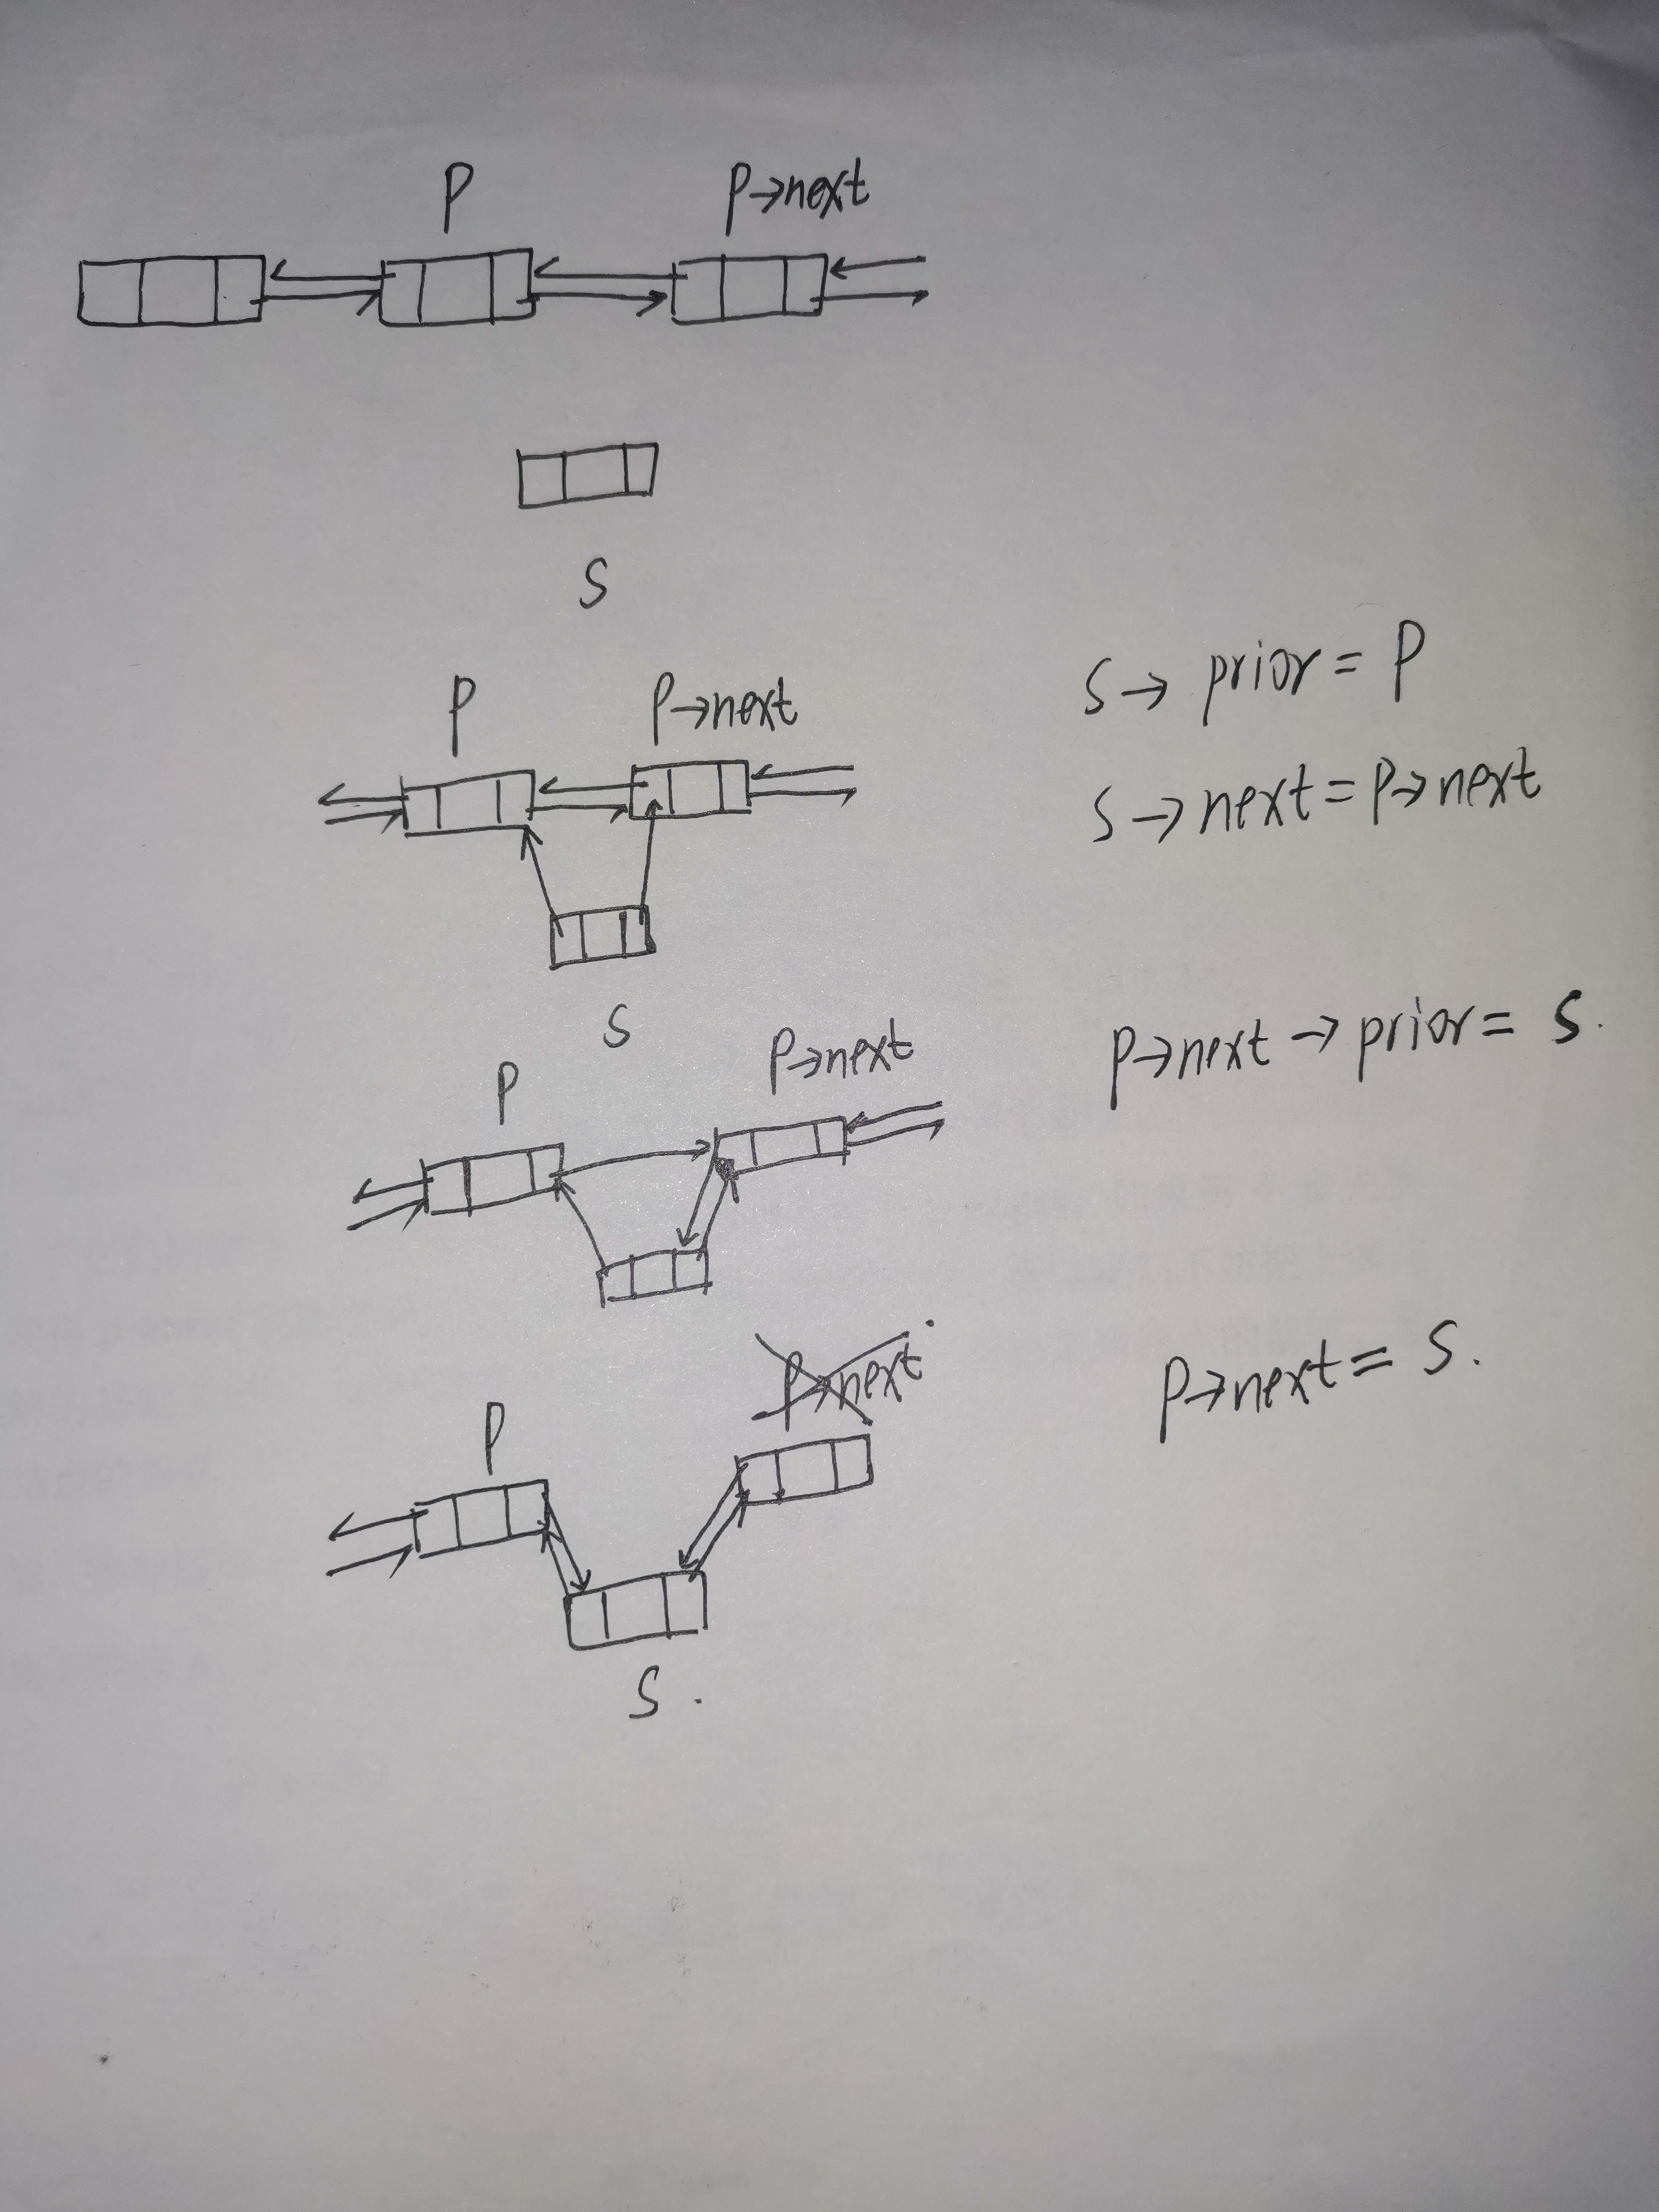 P P→next
S
P P→next
S→prior=P
S→next=P→next
S
P P→next
P→next→prior=S.
P→next
P
P→next=S.
S.